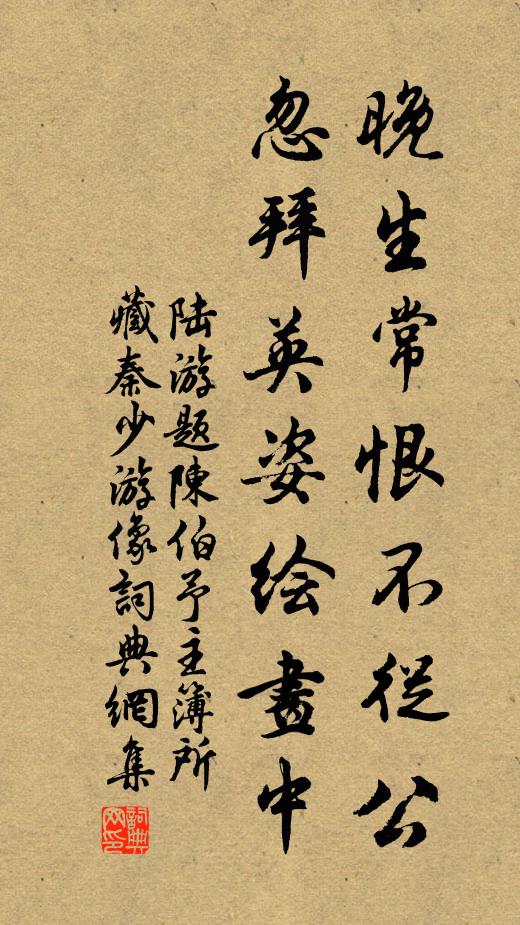 晚生常恨不從公
忽拜英姿绘畫中
陆游题陳伯予主簿所
藏秦少游像詞典網集
詞典网印